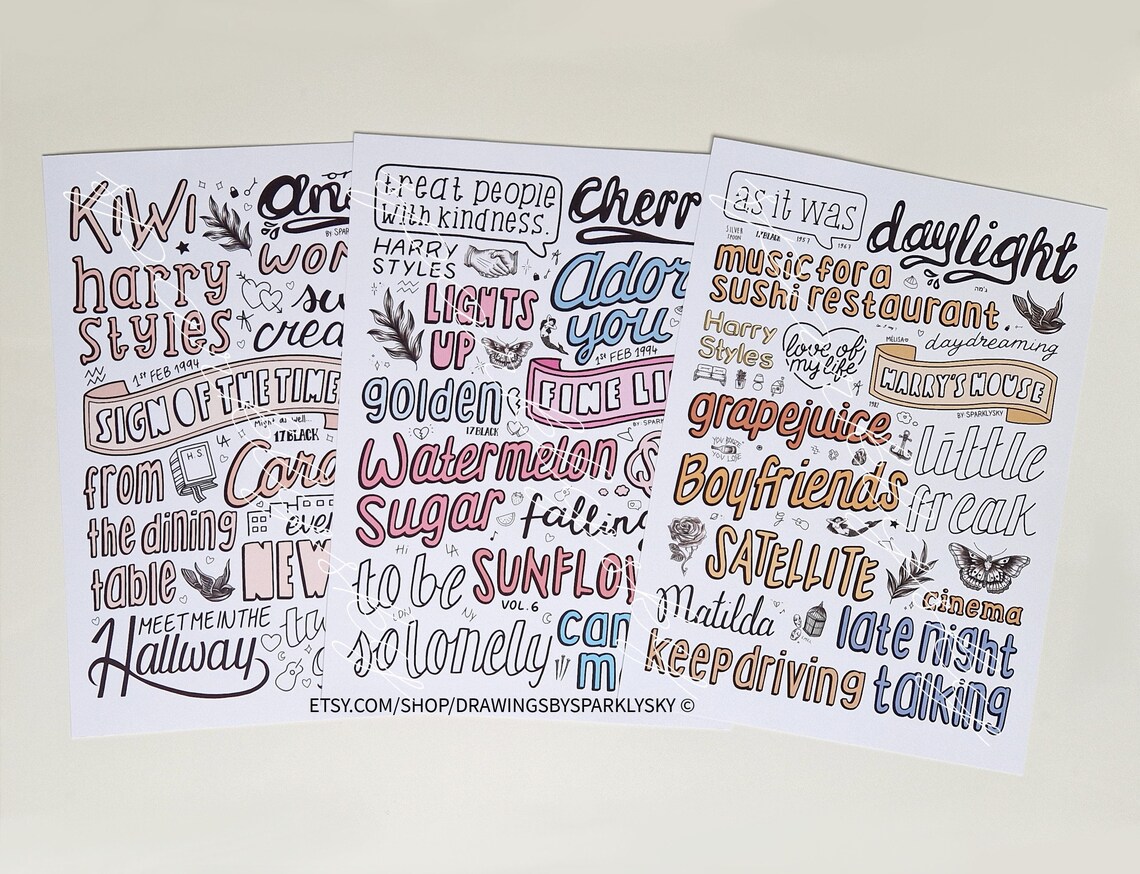 KiWi
or
ang
BY SPAR
harry
styles
wom
sw
crea
1ST FEB 1994
SIGN OF THE TIME
Might as well...
17BLACK
LA
H.S
from
the dining
table
Caro
ever
NEW
MEET ME IN THE
Hallway
tw
treat people
with kindness.
cherr
HARRY
STYLES
LIGHTS
UP
Ador
you
1ST FEB 1994
FINE LI
BY SPARK
golden
17BLACK
Watermelon
Sugar
falling
Hi
LA
to be
so lonely
LDN
NY
SUNFLO
VOL. 6
can
m
as it was
daylight
SILVER
SPOON
17BLACK
1957
1967
music for a
sushi restaurant.
Harry
Styles
love of
my life
MELISA
daydreaming
HARRY'S HOUSE
BY SPARKLYSKY
grapejuice
1982
YOU BOOZE
YOU LOSE
little
freak
Boyfriends
SATELLITE
cinema
Matilda
late night
talking
keep driving
ETSY.COM/SHOP/DRAWINGSBYSPARKLYSKY ©